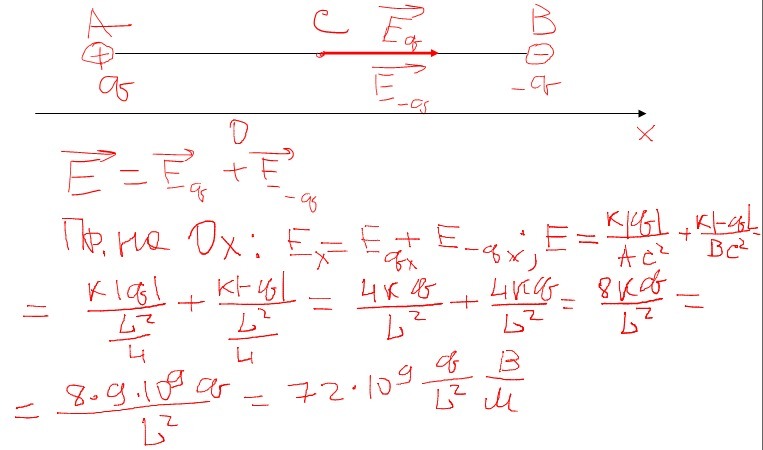 A C E⃗q B
+ −
q E⃗-q -q
O x
E⃗ = E⃗q + E⃗-q
Пр. на Ox: Ex = Eqx + E-qx; E = K|q|/AC² + K|-q|/BC² =
= K|q|/(L²/4) + K|-q|/(L²/4) = 4Kq/L² + 4Kq/L² = 8Kq/L² =
= 8·9·10⁹ q/L² = 72·10⁹ q/L² В/м